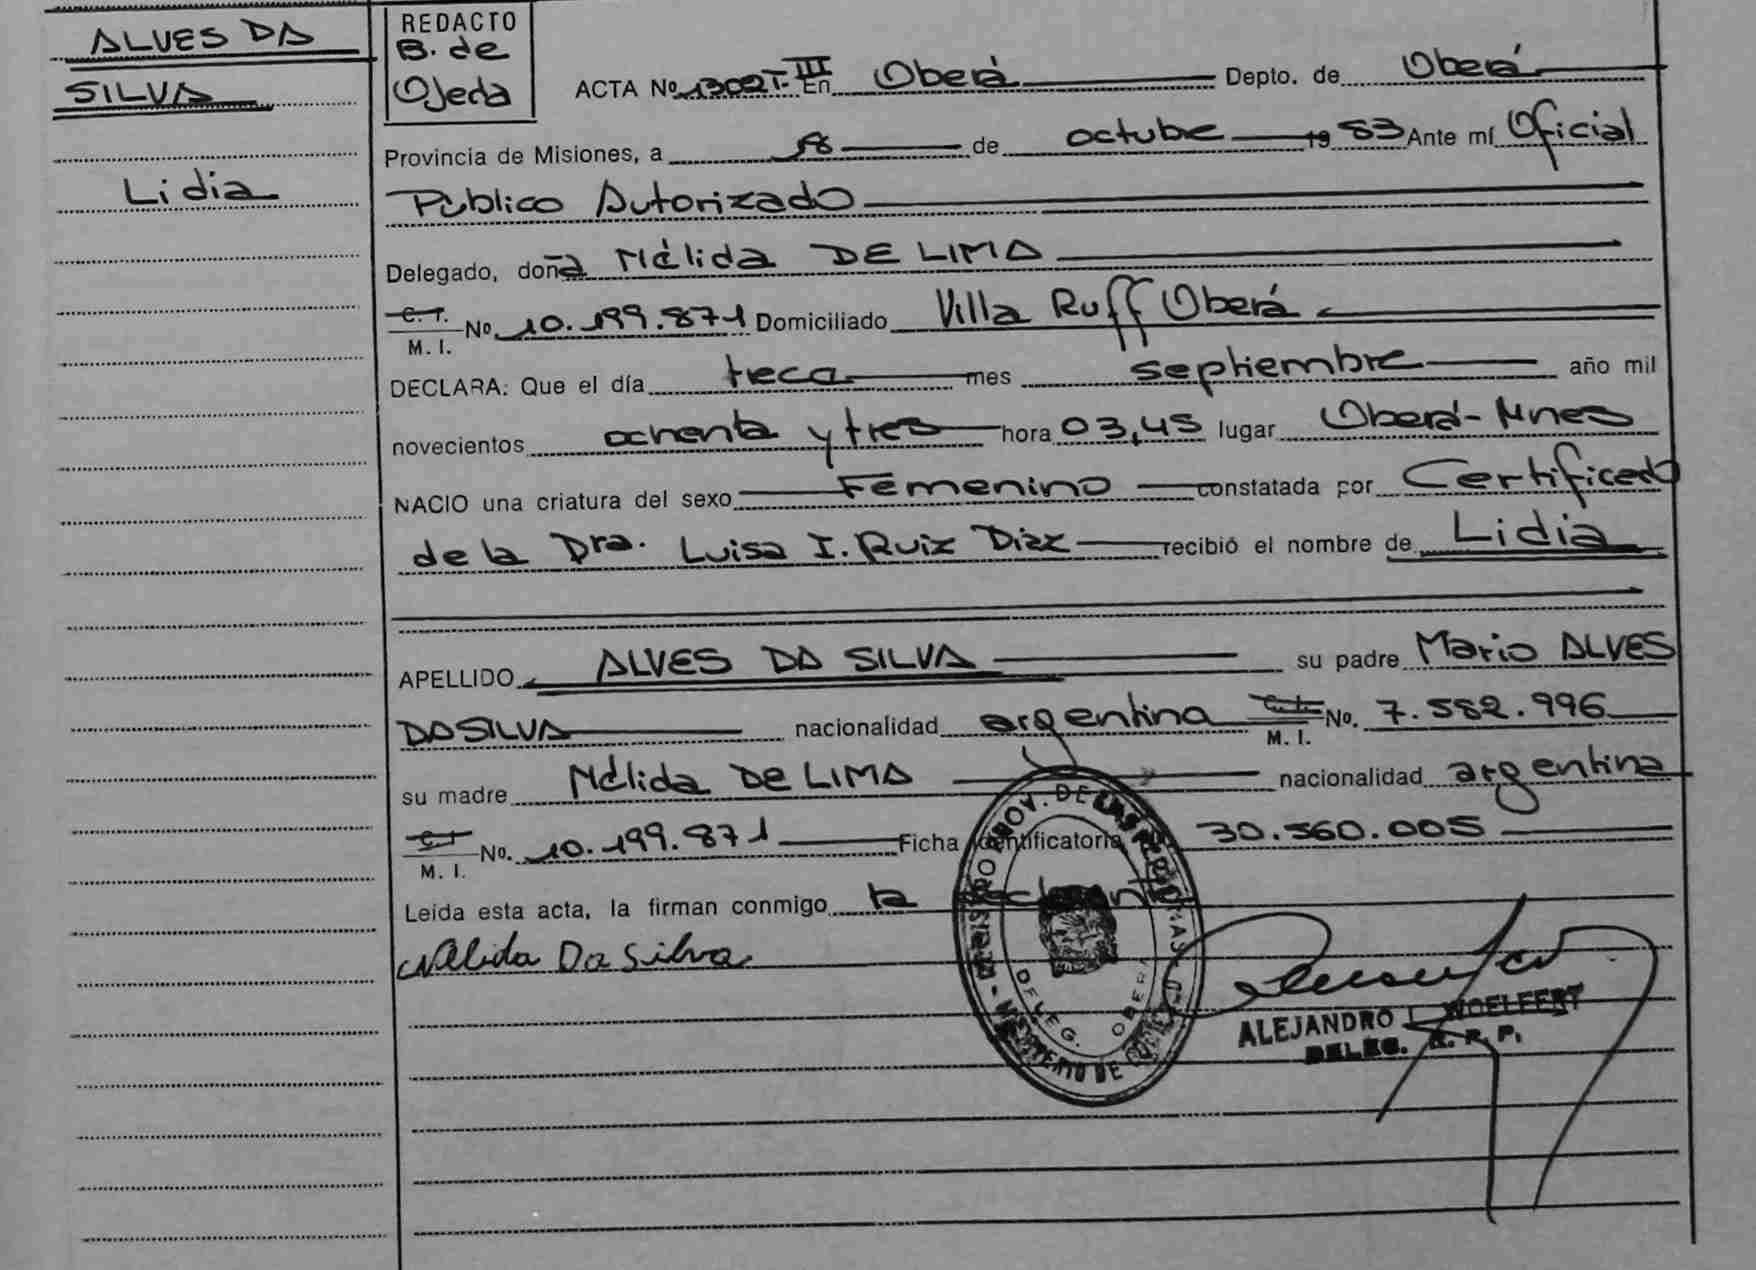 ALVES DA
SILVA
Lidia
REDACTO
B. de
Ojeda
ACTA No 1302 T. III En Oberá Depto. de Oberá
Provincia de Misiones, a de octubre 1983 Ante mí Oficial
Público Autorizado
Delegado, doña Nélida DE LIMA
C. I.
M. I. No 10.199.871 Domiciliado Villa Ruff Oberá
DECLARA: Que el día trece mes septiembre año mil
novecientos ochenta y tres hora 03,45 lugar Oberá-Mnes
NACIO una criatura del sexo Femenino constatada por Certificado
de la Dra. Luisa I. Ruiz Diaz recibió el nombre de Lidia
APELLIDO ALVES DA SILVA su padre Mario ALVES
DA SILVA nacionalidad argentina M. I. No. 7.582.996
su madre Nélida DE LIMA nacionalidad argentina
C. I.
M. I. No. 10.199.871 Ficha identificatoria 30.560.005
Leída esta acta, la firman conmigo la
Nélida Da Silva
PROV. DE LAS PERSONAS
DELEG. OBERA
ALEJANDRO L. WOELFERT
DELEG. R. P.